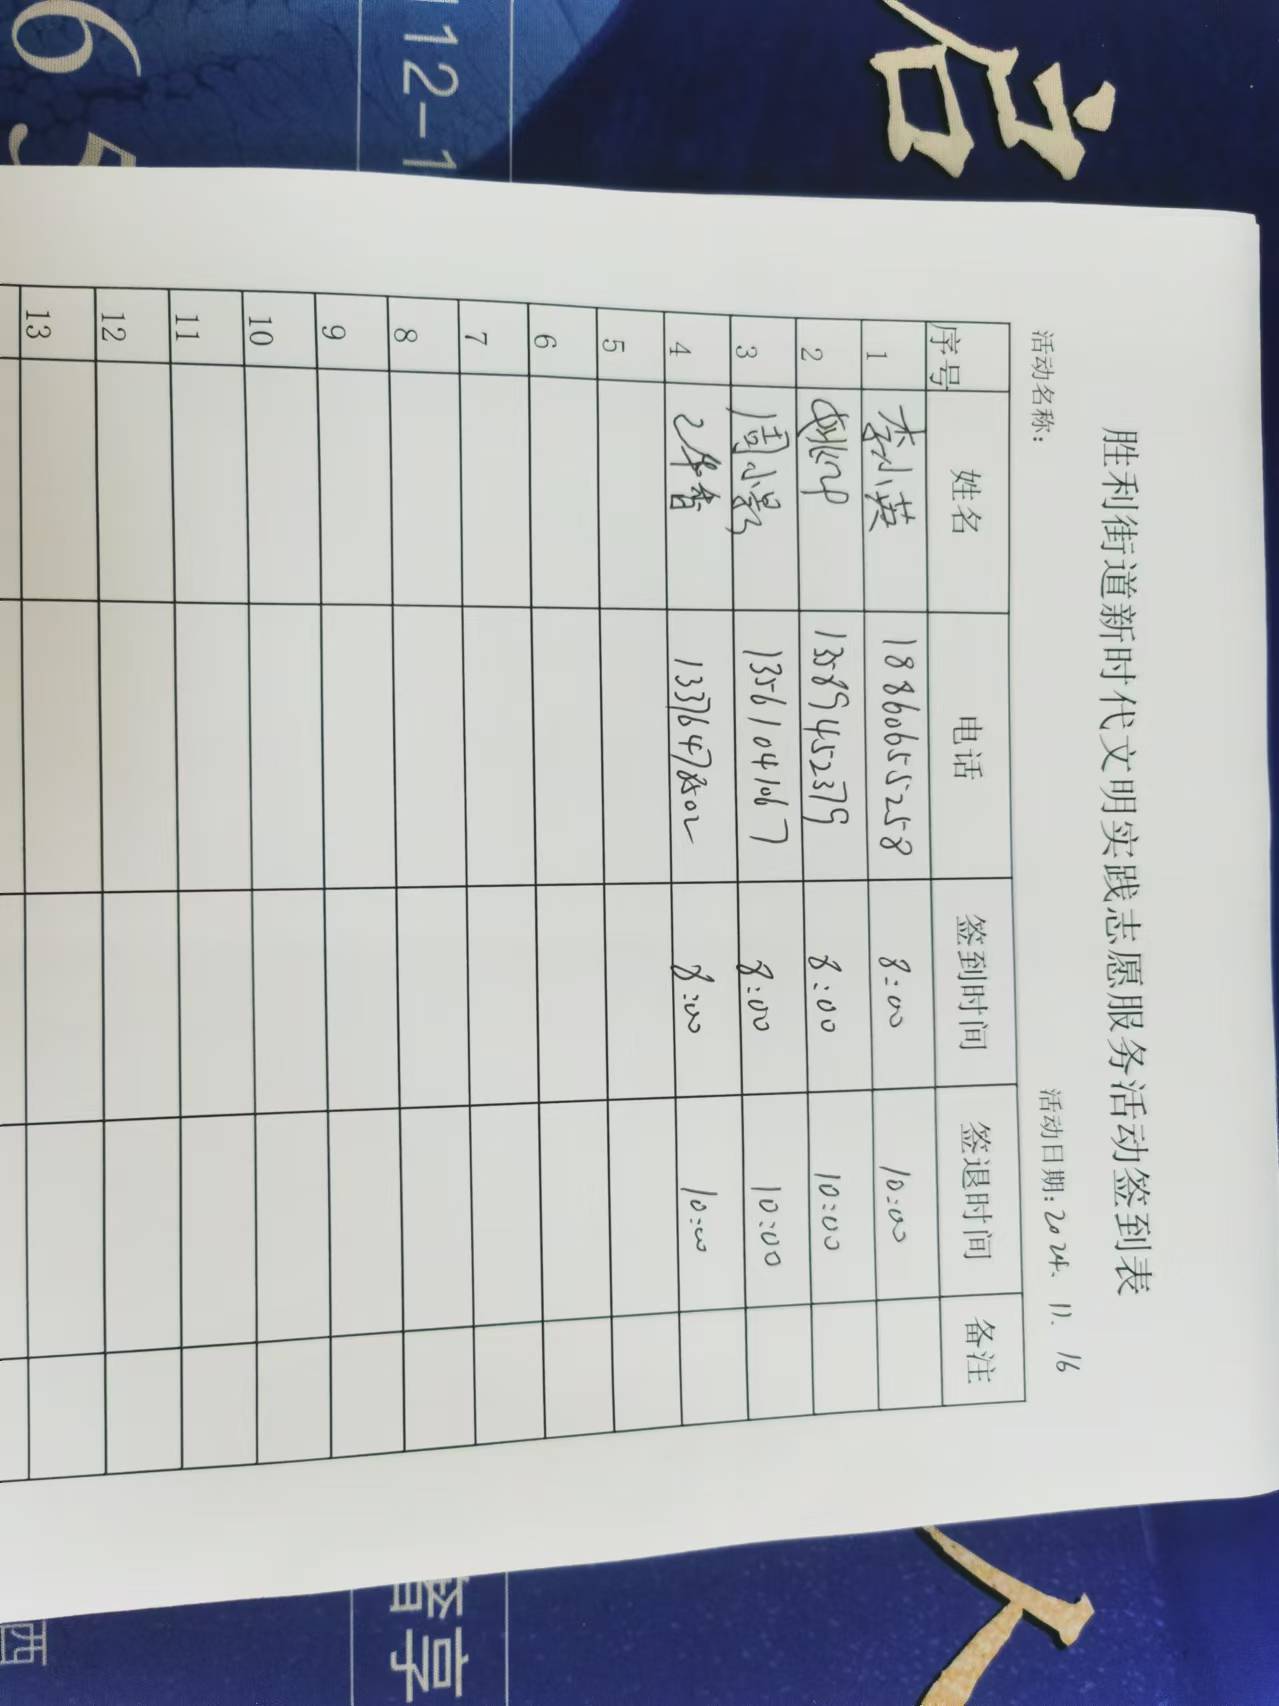 胜利街道新时代文明实践志愿服务活动签到表
活动名称： 活动日期：2024.11.16
序号 姓名 电话 签到时间 签退时间 备注
1 李小英 18860655258 8:00 10:00
2 13589452379 8:00 10:00
3 周小影 13561041067 8:00 10:00
4 13376478502 8:00 10:00
5
6
7
8
9
10
11
12
13
6 5
112-1
启
人
享
西